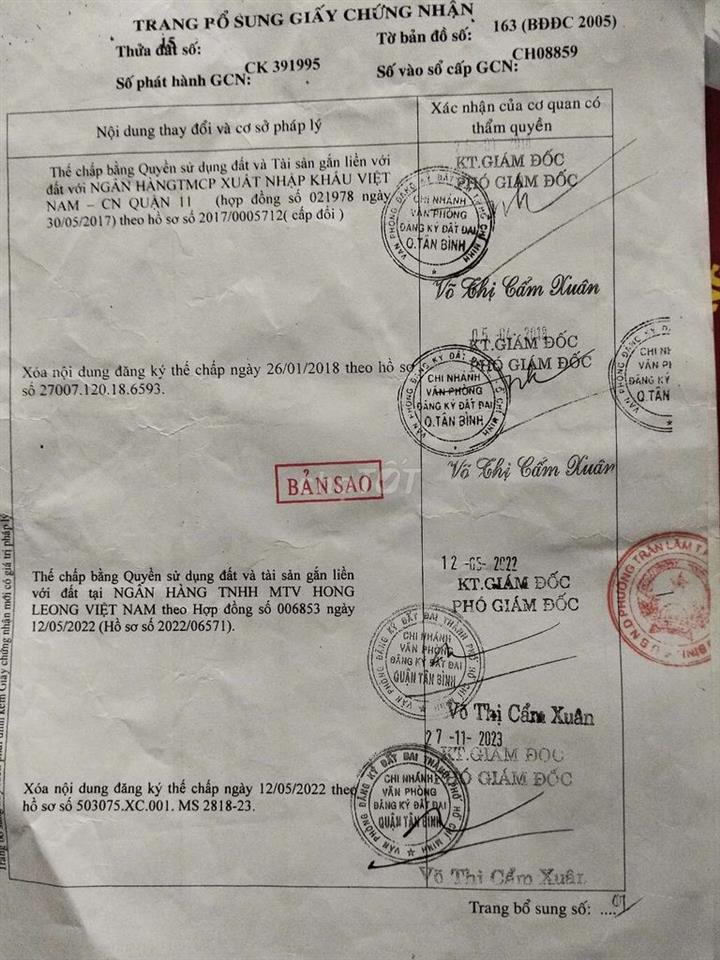 TRANG BỔ SUNG GIẤY CHỨNG NHẬN
Thửa đất số: 15
Tờ bản đồ số: 163 (BĐĐC 2005)
Số phát hành GCN: CK 391995
Số vào sổ cấp GCN: CH08859
Nội dung thay đổi và cơ sở pháp lý
Xác nhận của cơ quan có
thẩm quyền
Thế chấp bằng Quyền sử dụng đất và Tài sản gắn liền với
đất với NGÂN HÀNGTMCP XUẤT NHẬP KHẨU VIỆT
NAM – CN QUẬN 11 (hợp đồng số 021978 ngày
30/05/2017) theo hồ sơ số 2017/0005712( cấp đổi )
KT.GIÁM ĐỐC
PHÓ GIÁM ĐỐC
VĂN PHÒNG ĐĂNG KÝ ĐẤT ĐAI
CHI NHÁNH
VĂN PHÒNG
ĐĂNG KÝ ĐẤT ĐAI
Q.TÂN BÌNH
Võ Thị Cẩm Xuân
Xóa nội dung đăng ký thế chấp ngày 26/01/2018 theo hồ sơ
số 27007.120.18.6593.
KT.GIÁM ĐỐC
PHÓ GIÁM ĐỐC
VĂN PHÒNG ĐĂNG KÝ ĐẤT ĐAI
CHI NHÁNH
VĂN PHÒNG
ĐĂNG KÝ ĐẤT ĐAI
Q.TÂN BÌNH
CHI NH
VĂN PH
ĐĂNG KÝ
Q.TÂN
Võ Thị Cẩm Xuân
BẢN SAO
Thế chấp bằng Quyền sử dụng đất và tài sản gắn liền
với đất tại NGÂN HÀNG TNHH MTV HONG
LEONG VIỆT NAM theo Hợp đồng số 006853 ngày
12/05/2022 (Hồ sơ số 2022/06571).
12-05-2022
KT.GIÁM ĐỐC
PHÓ GIÁM ĐỐC
VĂN PHÒNG ĐĂNG KÝ ĐẤT ĐAI THÀNH PHỐ HỒ CHÍ MINH
CHI NHÁNH
VĂN PHÒNG
ĐĂNG KÝ ĐẤT ĐAI
QUẬN TÂN BÌNH
Võ Thị Cẩm Xuân
27-11-2023
Xóa nội dung đăng ký thế chấp ngày 12/05/2022 theo
hồ sơ số 503075.XC.001. MS 2818-23.
KT.GIÁM ĐỐC
PHÓ GIÁM ĐỐC
VĂN PHÒNG ĐĂNG KÝ ĐẤT ĐAI THÀNH PHỐ HỒ CHÍ MINH
CHI NHÁNH
VĂN PHÒNG
ĐĂNG KÝ ĐẤT ĐAI
QUẬN TÂN BÌNH
Võ Thị Cẩm Xuân
Trang bổ sung số: ....01